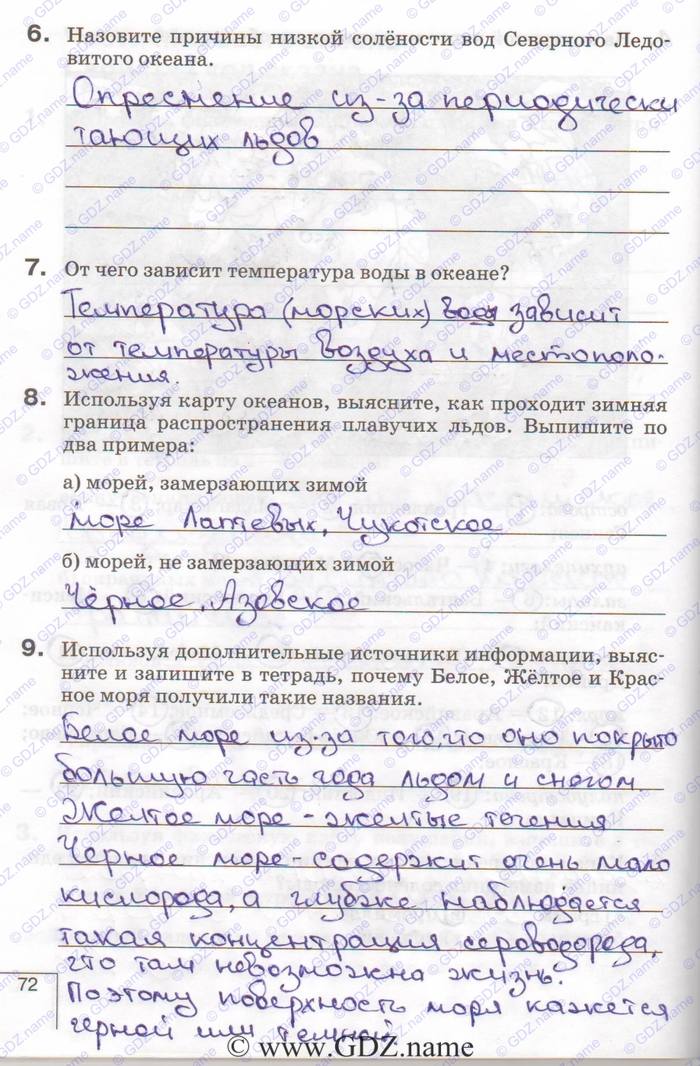 6. Назовите причины низкой солёности вод Северного Ледо-
витого океана.
Опреснение из-за периодически
тающих льдов
7. От чего зависит температура воды в океане?
Температура (морских) воды зависит
от температуры воздуха и местополо-
жения.
8. Используя карту океанов, выясните, как проходит зимняя
граница распространения плавучих льдов. Выпишите по
два примера:
а) морей, замерзающих зимой
море Лаптевых, Чукотское
б) морей, не замерзающих зимой
Чёрное, Азовское
9. Используя дополнительные источники информации, выяс-
ните и запишите в тетрадь, почему Белое, Жёлтое и Крас-
ное моря получили такие названия.
Белое море из-за того, что оно покрыто
большую часть года льдом и снегом.
Желтое море - желтые течения
Черное море - содержит очень мало
кислорода, а глубже наблюдается
такая концентрация сероводорода,
что там невозможна жизнь.
Поэтому поверхность моря кажется
черной или темной
72
© www.GDZ.name